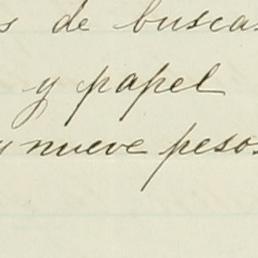 s de busca
y papel
y nueve pesos